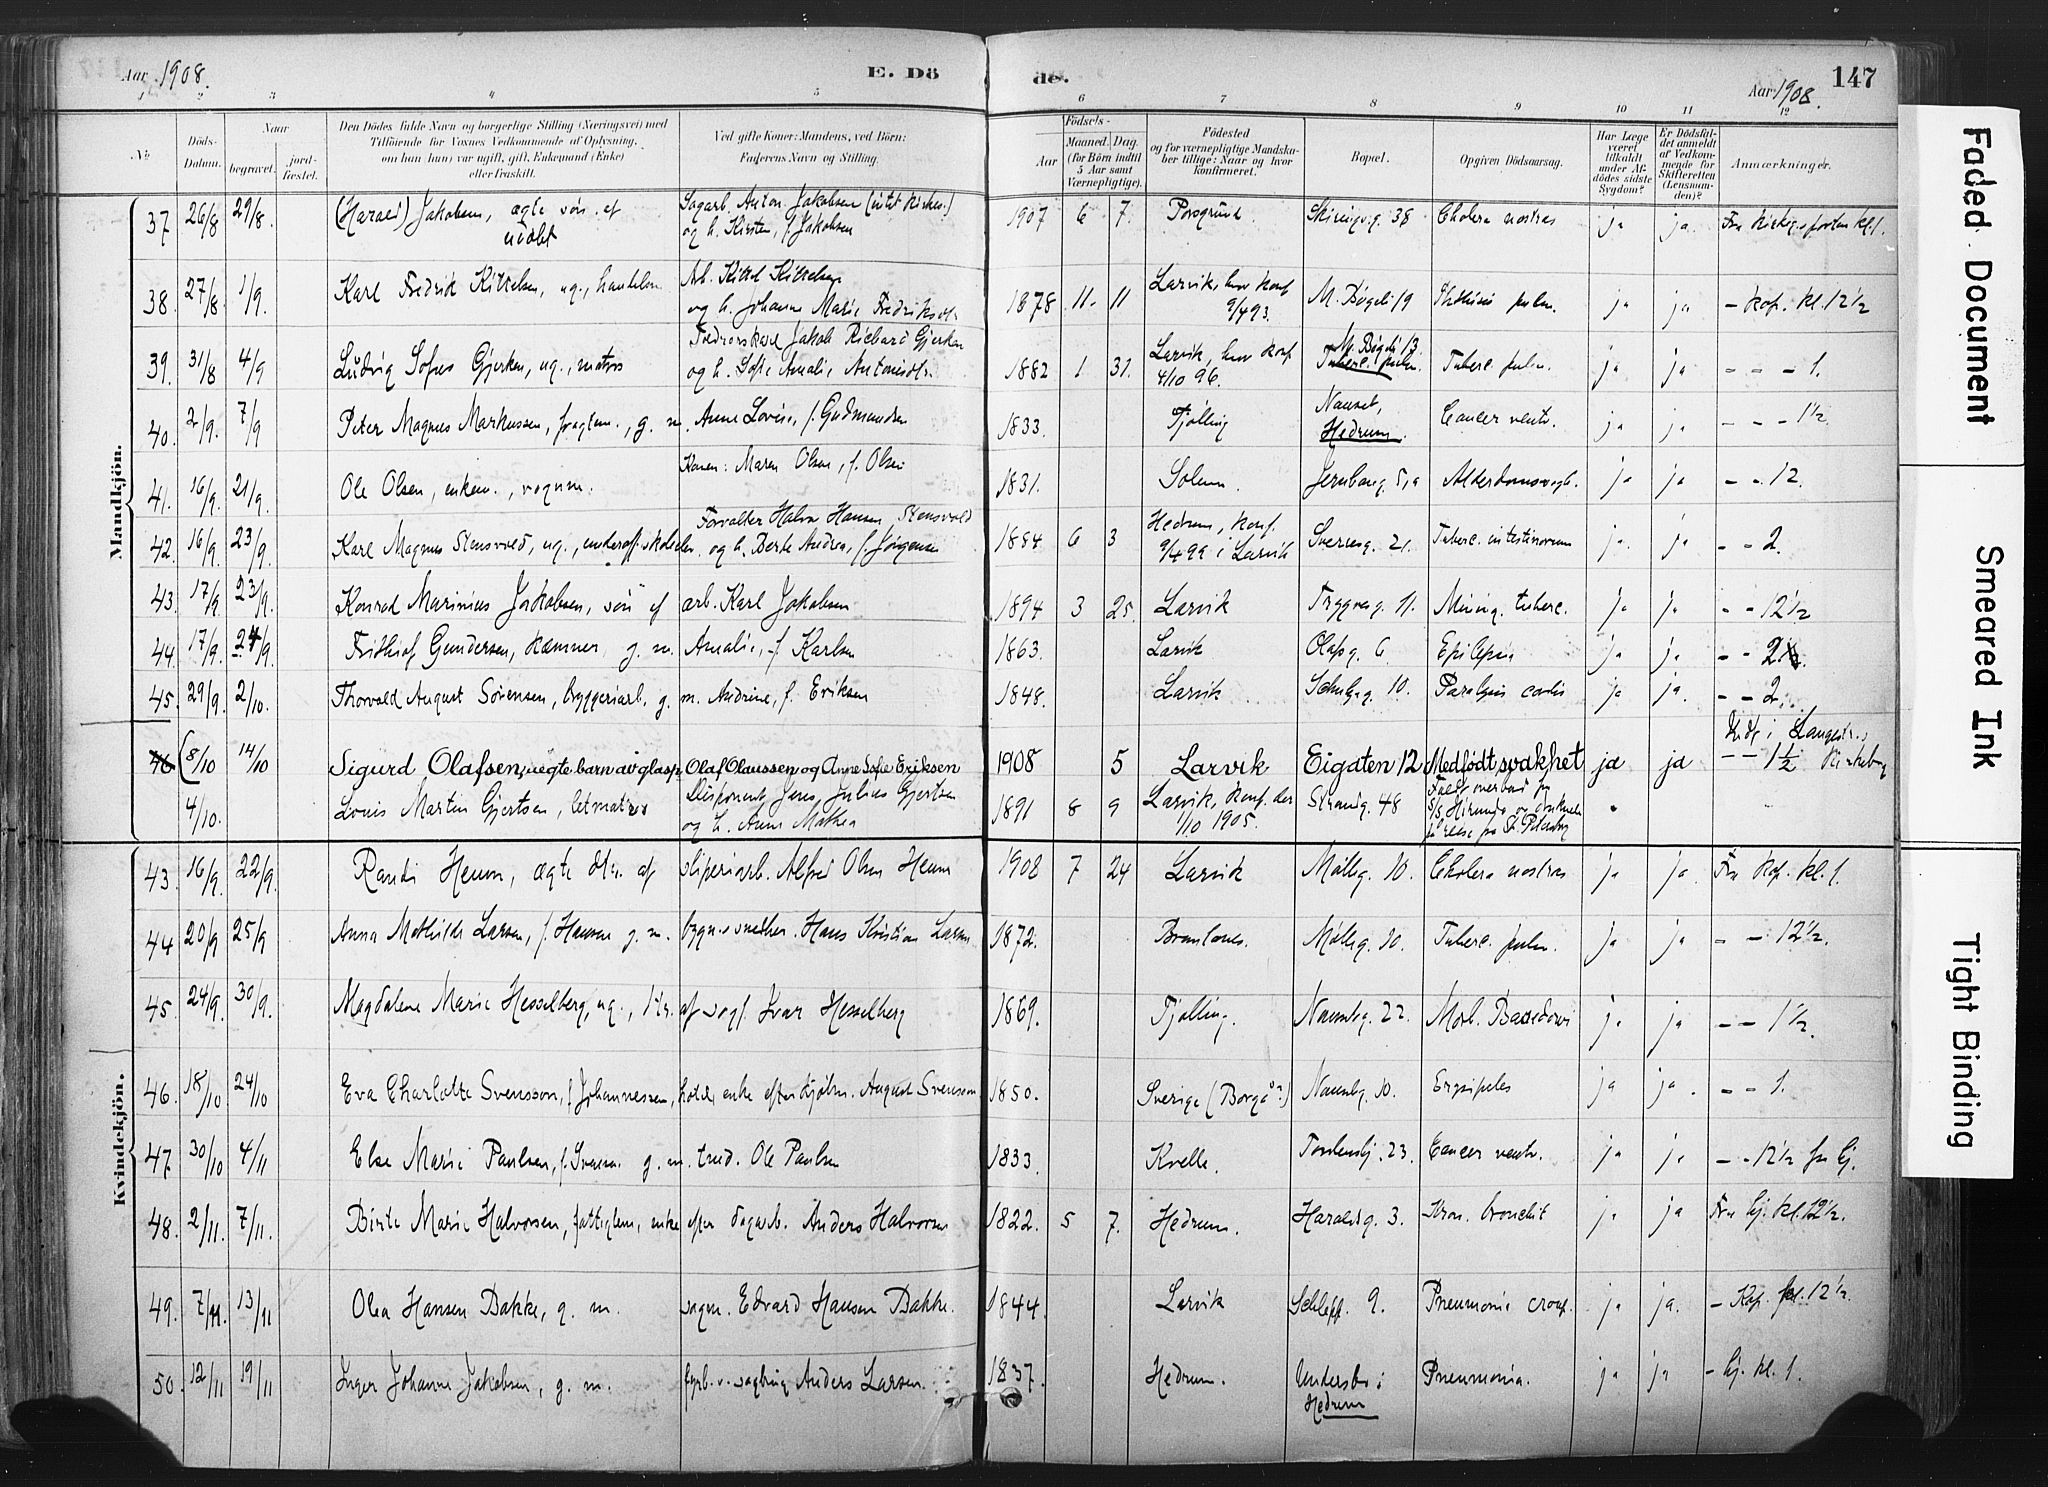 Aar 1908.
E. Dö
de.
Aar 1908.
147
1 2 3 4 5 6 7 8 9 10 11 12
No
Döds-Datum.
Naar
begravet.
jord-fæstet.
Den Dödes fulde Navn og borgerlige Stilling (Næringsvei) med
Tilföiende for Voxnes Vedkommende af Oplysning,
om han (hun) var ugift, gift, Enkemand (Enke)
eller fraskilt.
Ved gifte Koner: Mandens, ved Börn:
Faderens Navn og Stilling.
Födsels-
Aar
Maaned. Dag.
(for Börn indtil
5 Aar samt
Værnepligtige).
Födested
og for værnepligtige Mandska-
ber tillige: Naar og hvor
konfirmeret.
Bopæl.
Opgiven Dödsaarsag.
Har Læge
været
tilkaldt
under Af-
dödes sidste
Sygdom?
Er Dödsfal-
det anmeldt
af Vedkom-
mende for
Skifteretten
(Lensman-
den)?
Anmærkninger.
Mandkjön.
37 26/8 29/8. (Harald) Jakobsen, ægte sön af Anton Jakobsen 1907 6 7. Porsgrund 38 Cholera nostras ja ja. Fra kl. 1.
udøbt og h. Kirsten, f. Jakobsen
38. 27/8. 1/9. Karl Fredrik Kittelsen, ug., Arb. Kittel Kittelsen 1878 11 11 Larvik, her konf. M. Bøgeli 19 Phthisis pulm. ja ja - Kap. kl. 12½
og h. Johanne Marie Fredriksdtr. 9/4 93.
39. 31/8 4/9 Ludvig Sofus Gjerken, ug., matros Jakob Richard Gjerken 1882 1 31. Larvik, her konf. M. Bøgeli 13 Tuberc. pulm. ja ja - - - 1.
og h. Sofie Amalie Antonisdtr. 4/10 96. Tuberc. pulm.
40. 2/9. 7/9 Peter Magnus Markussen, g. m. Anne Lovise, f. Gudmundsen 1833. Tjølling Nanset, Cancer ventr. ja ja - - - 1½
Hedrum.
41. 16/9. 21/9. Ole Olsen, enkem., vognm. Konen: Maren Olsen, f. Olsen 1831. Solum. Jernbaneg. 5a Alderdomssvagh. ja ja - - 12.
42. 16/9. 23/9. Karl Magnus Stensvold, ug., Forvalter Halvor Hansen Stensvold 1884 6 3 Hedrum, konf. Sverresg. 21. Tuberc. intestinorum ja ja - - 2.
og h. Berte Andrea, f. Jörgensen 9/4 99 i Larvik
43. 17/9 23/9. Konrad Marinius Jakobsen, sön af arb. Karl Jakobsen 1894 3 25. Larvik Tryggvesg. 11. Mening. tuberc. ja ja - - 12½
44. 17/9. 24/9. Frithiof Gundersen, kæmner, g. m. Amalie, f. Karlsen 1863. Larvik Olafsg. 6. Epilepsia ja ja - - 2
45. 29/9. 2/10. Thorvald August Sörensen, bryggeriarb. g. m. Andrine, f. Eriksen 1848. Larvik Schultzeg. 10. Paralysis cordis ja ja. - - 2.
46 8/10 14/10 Sigurd Olafsen, uægte barn av glasp. Olaf Olaussen og Anne Sofie Eriksen 1908 5 Larvik Eigaten 12 Medfödt svakhet ja ja - - 1½
4/10. Louis Martin Gjertsen, letmatros Disponent Jens Julius Gjertsen 1891 8 9 Larvik, konf. der Strandg. 48 Faldt overbord fra
og h. Anne Mathea 1/10 1905. S/S Hirundo og druknede
på reise fra St. Petersborg
Kvindekjön.
43. 16/9. 22/9. Randi Heum, ægte dtr. af sliperiarb. Alfred Olsen Heum 1908 7 24 Larvik Mölleg. 10. Cholera nostras ja ja Fra Kap. kl. 1.
44 20/9 25/9 Anna Mathilde Larsen, f. Hansen g. m. bygn.snedker Hans Kristian Larsen 1872. Brunlanes. Mölleg. 10. Tuberc. pulm. ja ja - - 12½.
45. 24/9. 30/9. Magdalene Marie Hesselberg, ug., dtr. af Ivar Hesselberg 1869. Tjølling. Nansetg. 22. Morb. Basedowi ja ja - - 1½.
46. 18/10 24/10 Eva Charlotte Svensson, f. Johannessen, enke efter August Svensson 1850. Sverige (Borgå?) Nansetg. 10. Erysipelas ja ja. - - 1.
47 30/10 4/11 Else Marie Paulsen, f. g. m. Ole Paulsen 1833. Kvelle. Tordenskj. 23. Cancer ventr. ja ja - - 12½ fra hj.
48. 2/11. 7/11. Birte Marie Halvorsen, fattiglem, enke efter dagarb. Anders Halvorsen 1822. 5 7. Hedrum. Haraldsg. 3. Kron. bronchit ja ja Fra hj. kl. 12½.
49. 7/11. 13/11 Olea Hansen Bakke, g. m. Edvard Hansen Bakke. 1844. Larvik 9. Pneumonia croup. ja ja. - Kap. kl. 12½.
50. 12/11 19/11 Inger Johanne Jakobsen, g. m. Anders Larsen. 1837. Hedrum. Undersbo i Pneumonia. ja ja - hj. kl. 1.
Hedrum
Faded Document
Smeared Ink
Tight Binding